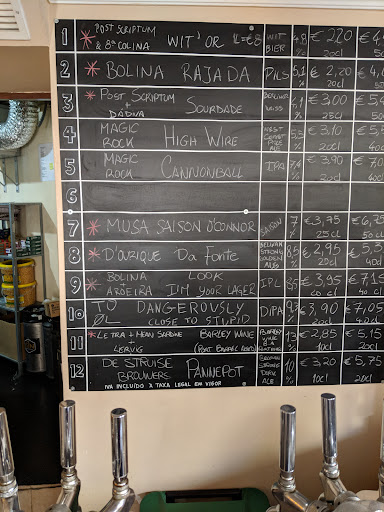 1 * POST SCRIPTUM & 8ª COLINA WIT'OR 1L=€8 WIT BIER 4,8 € 2,20 20cl
2 * BOLINA RAJADA PILS 5,1 % € 2,20 20cl
3 * POST SCRIPTUM + DÁDIVA SOURDADE BERLINER WEISS 4,1 € 3,00 25cl
4 MAGIC ROCK HIGH WIRE WEST COAST PALE ALE 5,5 % € 3,10 20cl
5 MAGIC ROCK CANNONBALL IPA 7,4 % € 3,90 20cl
6
7 * MUSA SAISON O'CONNOR SAISON 7 % € 3,75 25cl € 6,75 50cl
8 * D'OURIQUE DA FONTE BELGIAN STRONG GOLDEN ALE 8,5 % € 2,95 20cl € 5,3 40cl
9 * BOLINA AROEIRA LOOK I'M YOUR LAGER IPL 8,6 % € 3,95 € 7,15
10 TO ØL DANGEROUSLY CLOSE TO STUPID DIPA 9,3 % € 3,90 20cl € 7,05 40cl
11 * LETRA + MEAN SARDINE + LERVIG BARLEY WINE (PORT BARREL AGED) BARLEY WINE 13 % € 2,85 10cl € 5,15 20cl
12 DE STRUISE BROUWERS PANNEPOT BELGIAN STRONG DARK ALE 10 % € 3,20 10cl € 5,75 20cl
IVA INCLUÍDO À TAXA LEGAL EM VIGOR